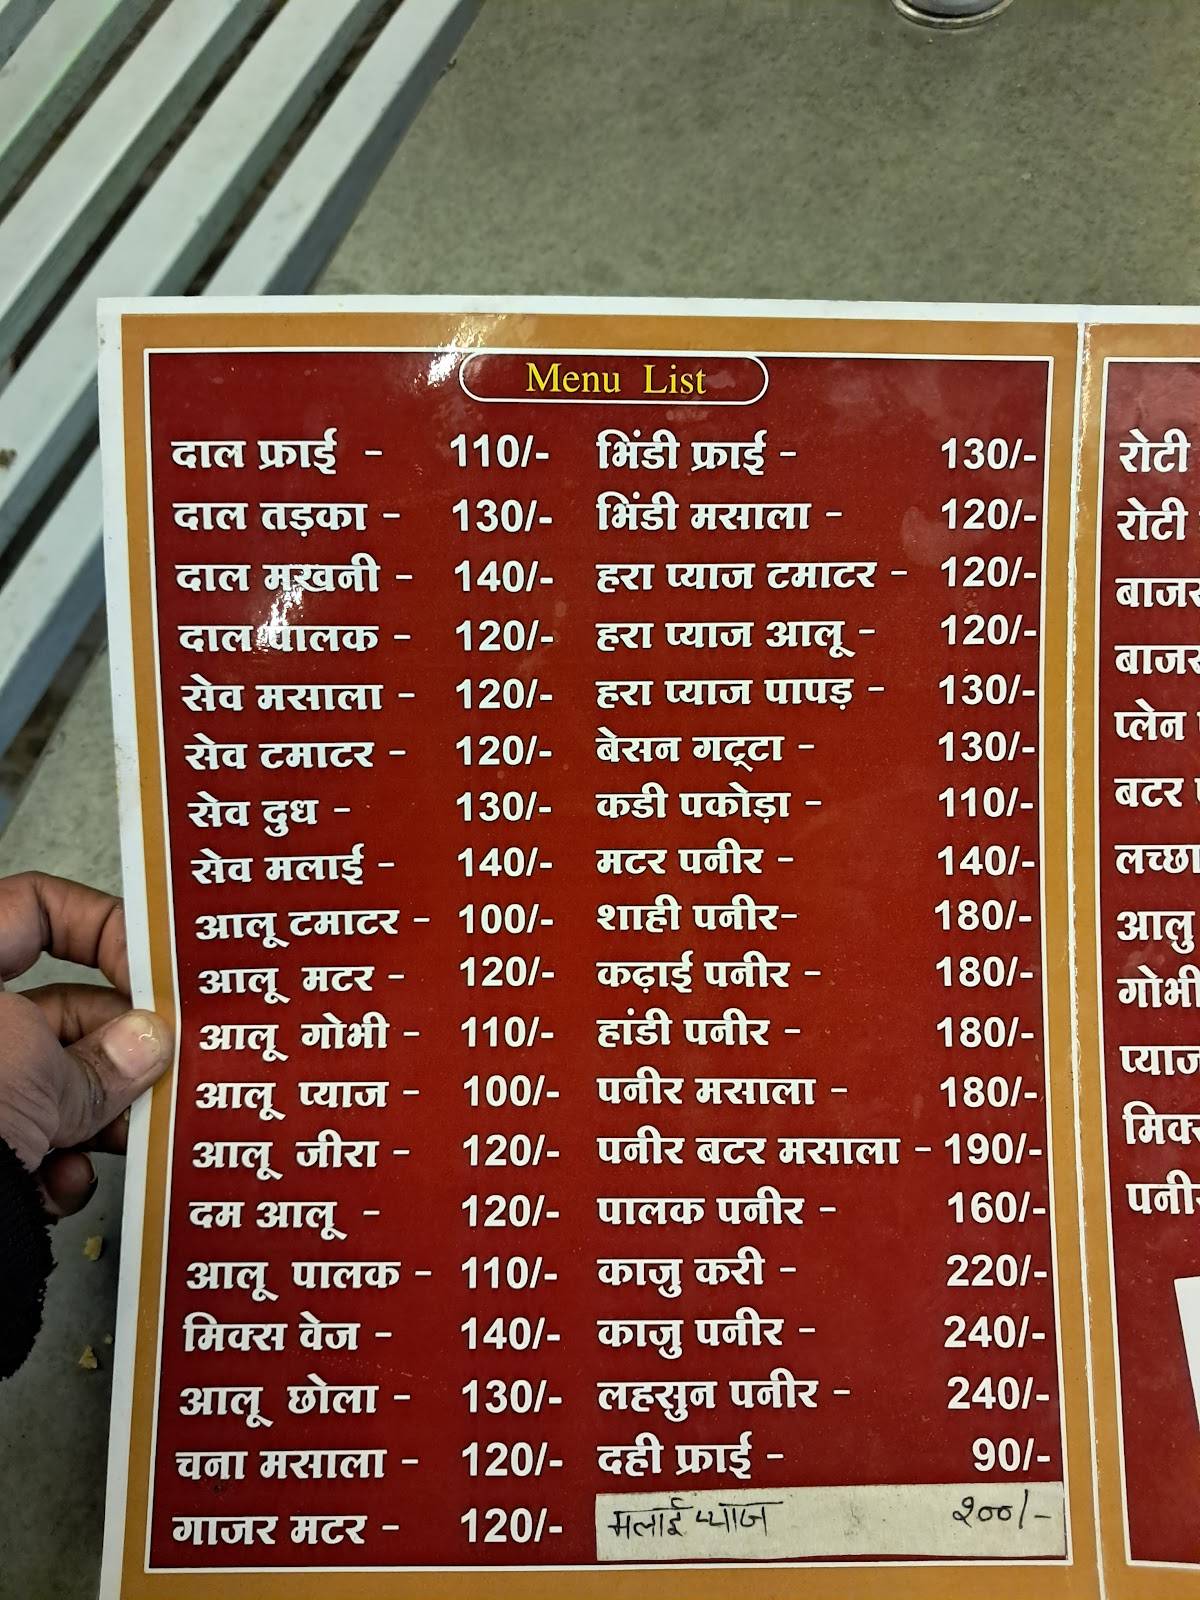 Menu List
दाल फ्राई - 110/-
दाल तड़का - 130/-
दाल मखनी - 140/-
दाल पालक - 120/-
सेव मसाला - 120/-
सेव टमाटर - 120/-
सेव दुध - 130/-
सेव मलाई - 140/-
आलू टमाटर - 100/-
आलू मटर - 120/-
आलू गोभी - 110/-
आलू प्याज - 100/-
आलू जीरा - 120/-
दम आलू - 120/-
आलू पालक - 110/-
मिक्स वेज - 140/-
आलू छोला - 130/-
चना मसाला - 120/-
गाजर मटर - 120/-
भिंडी फ्राई - 130/-
भिंडी मसाला - 120/-
हरा प्याज टमाटर - 120/-
हरा प्याज आलू - 120/-
हरा प्याज पापड़ - 130/-
बेसन गट्टा - 130/-
कडी पकोड़ा - 110/-
मटर पनीर - 140/-
शाही पनीर- 180/-
कढ़ाई पनीर - 180/-
हांडी पनीर - 180/-
पनीर मसाला - 180/-
पनीर बटर मसाला - 190/-
पालक पनीर - 160/-
काजु करी - 220/-
काजु पनीर - 240/-
लहसुन पनीर - 240/-
दही फ्राई - 90/-
मलाई प्याज २००/-
रोटी
रोटी
प्लेन
बटर
लच्छा
आलु
गोभी